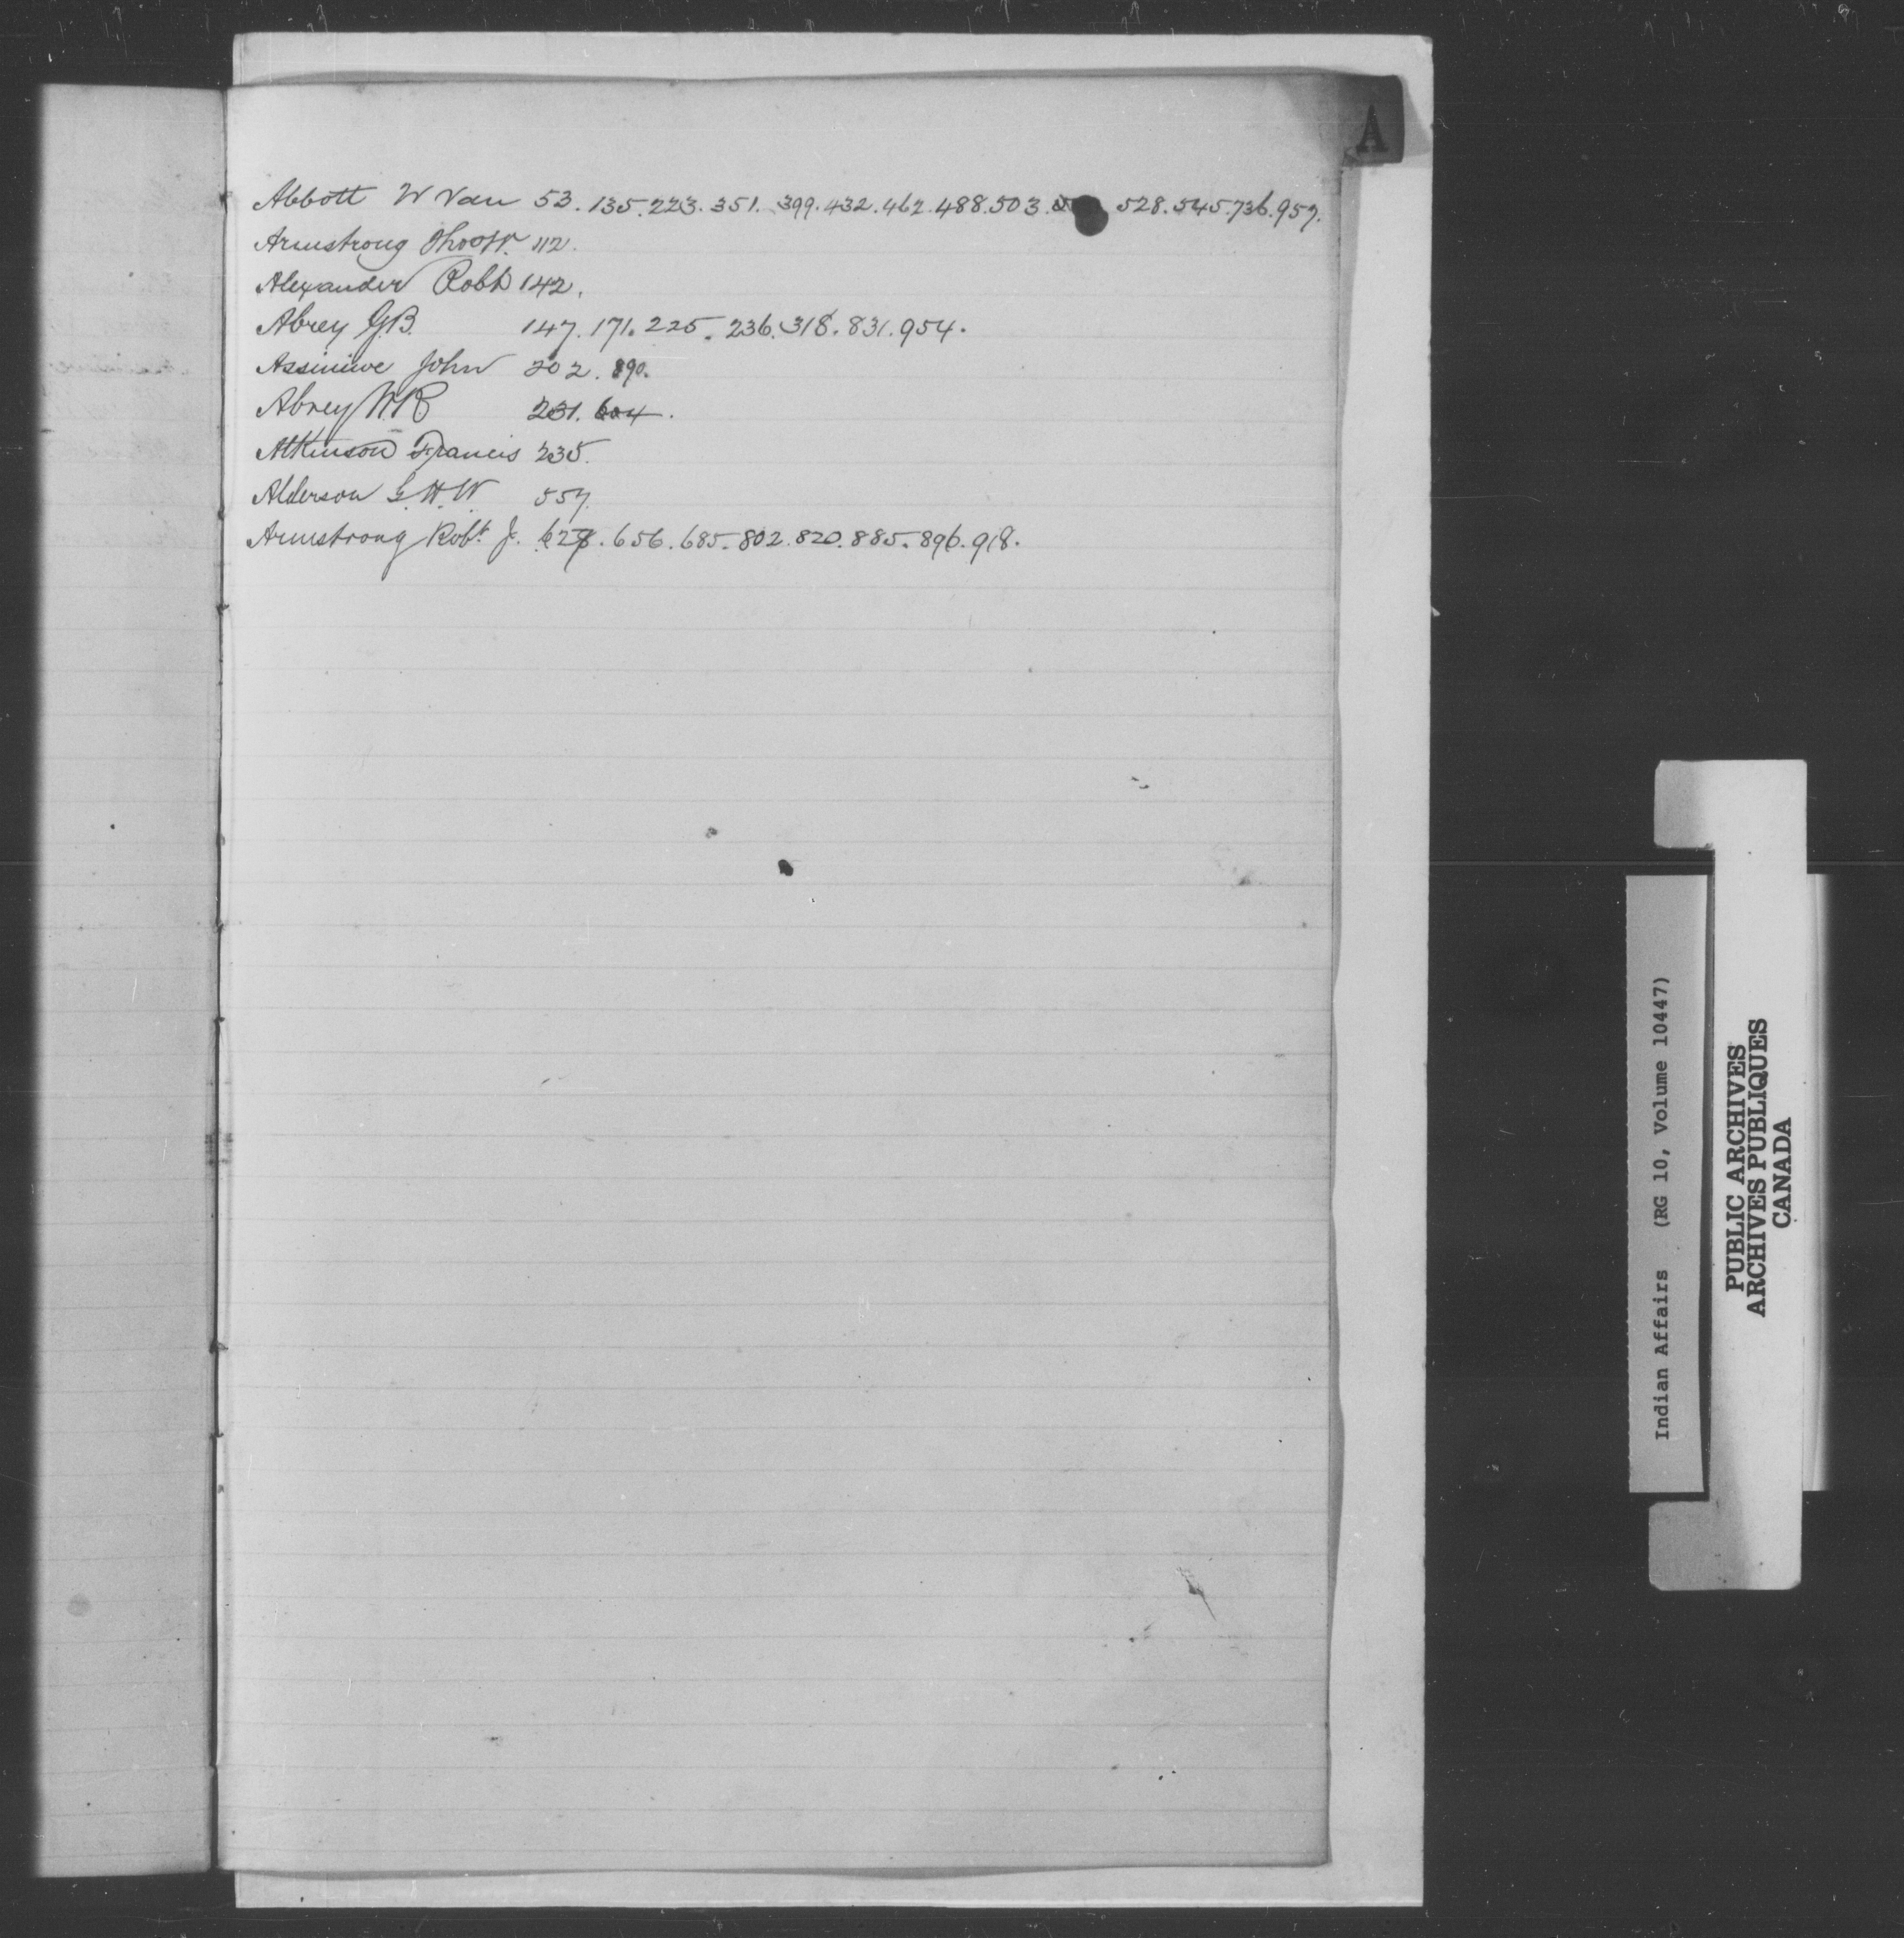 A
Abbott W Van 53. 135. 223. 351. 399. 432. 462. 488. 503. 528. 545. 736. 957.
Armstrong Thos W. 112.
Alexander Robt 142.
Abrey G.B. 147. 171. 225. 236. 318. 831. 954.
Assiniwe John 202. 890.
Abrey W.R 231. 604.
Atkinson Francis 235.
Alderson G. H. W. 557.
Armstrong Robt J. 627. 656. 685. 802. 820. 885. 896. 918.
Indian Affairs (RG 10, Volume 10447)
PUBLIC ARCHIVES
ARCHIVES PUBLIQUES
CANADA